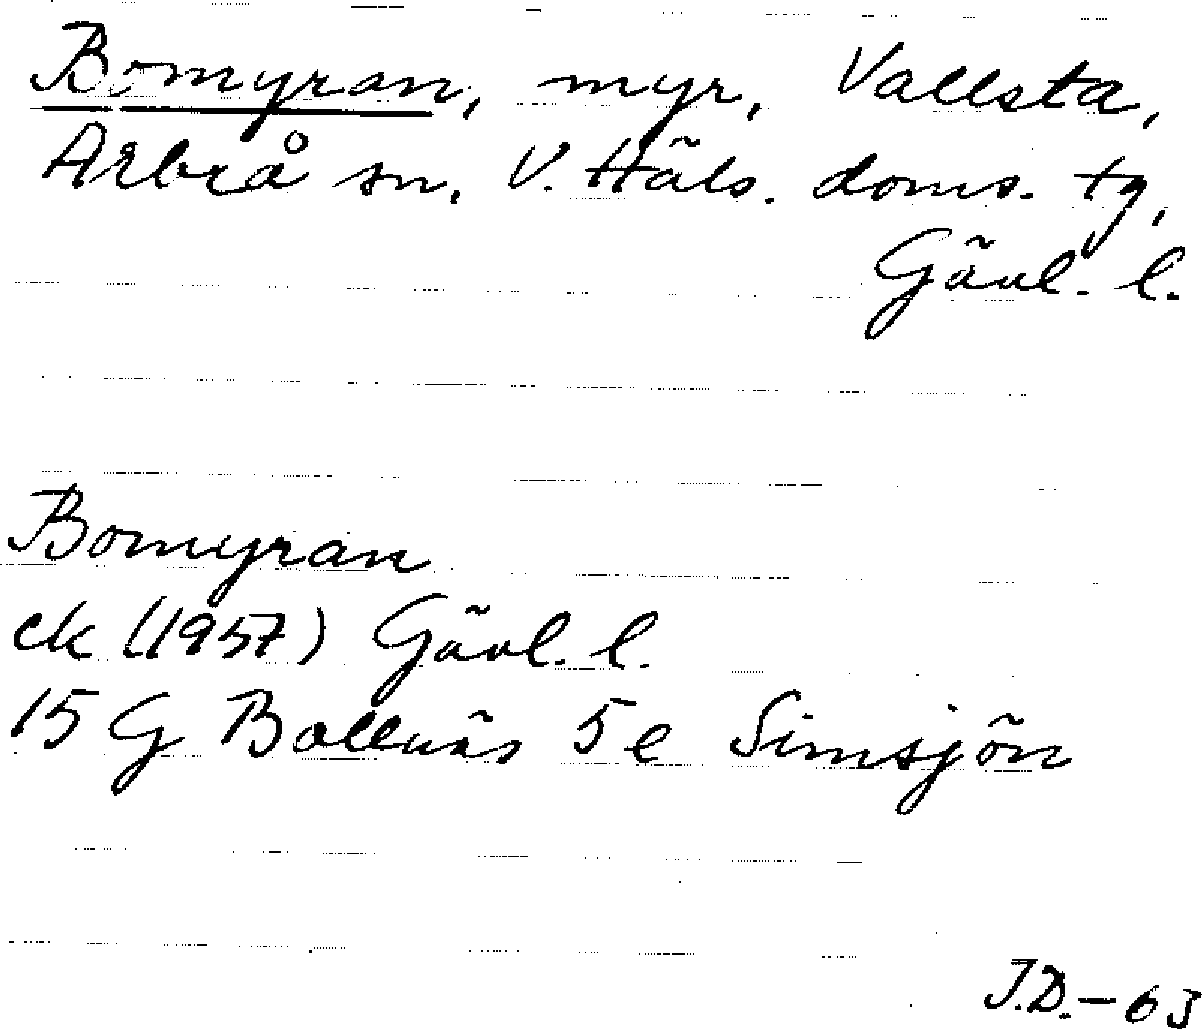 Bomyran, myr, Vallsta,
Arbrå sn, V. Häls. doms. tg,
Gävl. l.
Bomyran
ek (1957) Gävl. l.
15 G Bollnäs 5 e Simsjön
J.D. – 63